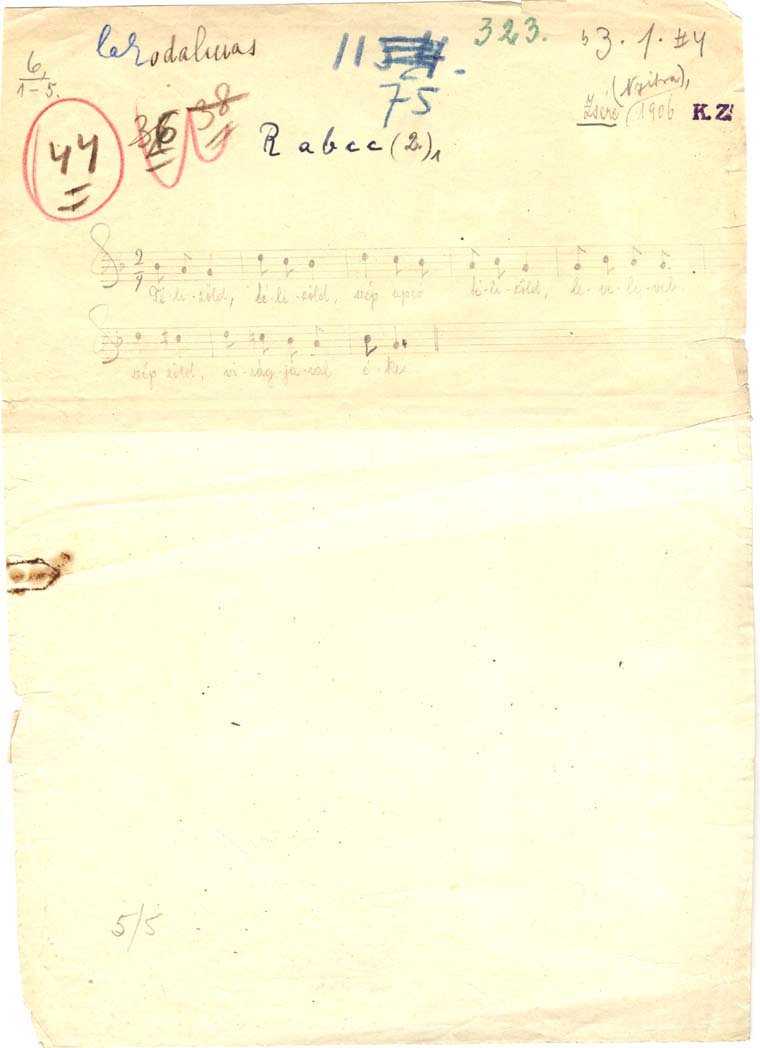 Lakodalmas
115
323.
53. 1. #4
6,
1-5.
75
(Nyitra),
Zsére 1906 K.Z
44
36
38
R abcc (2)1
2
4
Té-li-zöld, té-li-zöld, szép apró té-li-zöld, le-ve-li-vel
szép zöld, vi-rág-já-val é-kes
5/5